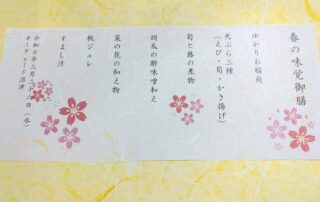 春の味覚御膳
ゆかりお稲荷
天ぷら三種
（えび・筍・かき揚げ）
筍と蕗の煮物
胡瓜の酢味噌和え
菜の花の和え物
桃ジュレ
すまし汁
令和七年三月二十六日（水）
オーキャード沼津